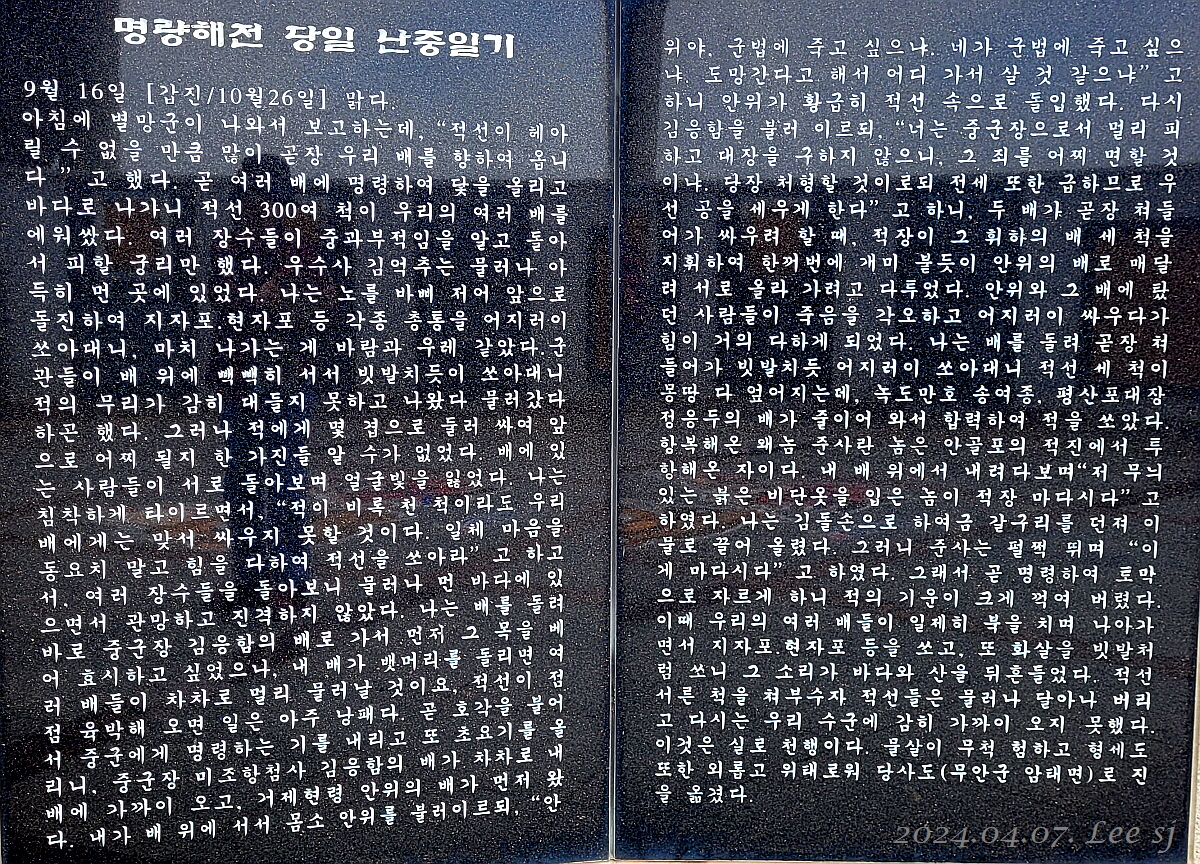 명량해전 당일 난중일기
9월 16일 [갑진/10월26일] 맑다.
아침에 별망군이 나와서 보고하는데, “적선이 헤아
릴 수 없을 만큼 많이 곧장 우리 배를 향하여 옵니
다 ” 고 했다. 곧 여러 배에 명령하여 닻을 올리고
바다로 나가니 적선 300여 척이 우리의 여러 배를
에워쌌다. 여러 장수들이 중과부적임을 알고 돌아
서 피할 궁리만 했다. 우수사 김억추는 물러나 아
득히 먼 곳에 있었다. 나는 노를 바삐 저어 앞으로
돌진하여 지자포.현자포 등 각종 총통을 어지러이
쏘아대니, 마치 나가는 게 바람과 우레 같았다.군
관들이 배 위에 빽빽히 서서 빗발치듯이 쏘아대니
적의 무리가 감히 대들지 못하고 나왔다 물러갔다
하곤 했다. 그러나 적에게 몇 겹으로 둘러 싸여 앞
으로 어찌 될지 한 가진들 알 수가 없었다. 배에 있
는 사람들이 서로 돌아보며 얼굴빛을 잃었다. 나는
침착하게 타이르면서, “적이 비록 천 척이라도 우리
배에게는 맞서 싸우지 못할 것이다. 일체 마음을
동요치 말고 힘을 다하여 적선을 쏘아라” 고 하고
서, 여러 장수들을 돌아보니 물러나 먼 바다에 있
으면서 관망하고 진격하지 않았다. 나는 배를 돌려
바로 중군장 김응함의 배로 가서 먼저 그 목을 베
어 효시하고 싶었으나, 내 배가 뱃머리를 돌리면 여
러 배들이 차차로 멀리 물러날 것이요, 적선이 점
점 육박해 오면 일은 아주 낭패다. 곧 호각을 불어
서 중군에게 명령하는 기를 내리고 또 초요기를 올
리니, 중군장 미조항첨사 김응함의 배가 차차로 내
배에 가까이 오고, 거제현령 안위의 배가 먼저 왔
다. 내가 배 위에 서서 몸소 안위를 불러이르되, “안
위야, 군법에 죽고 싶으냐. 네가 군법에 죽고 싶으
냐. 도망간다고 해서 어디 가서 살 것 같으냐” 고
하니 안위가 황급히 적선 속으로 돌입했다. 다시
김응함을 불러 이르되, “너는 중군장으로서 멀리 피
하고 대장을 구하지 않으니, 그 죄를 어찌 면할 것
이냐. 당장 처형할 것이로되 전세 또한 급하므로 우
선 공을 세우게 한다” 고 하니, 두 배가 곧장 쳐들
어가 싸우려 할 때, 적장이 그 휘하의 배 세 척을
지휘하여 한꺼번에 개미 붙듯이 안위의 배로 매달
려 서로 올라 가려고 다투었다. 안위와 그 배에 탔
던 사람들이 죽음을 각오하고 어지러이 싸우다가
힘이 거의 다하게 되었다. 나는 배를 돌려 곧장 쳐
들어가 빗발치듯 어지러이 쏘아대니 적선 세 척이
몽땅 다 엎어지는데, 녹도만호 송여종, 평산포대장
정응두의 배가 줄이어 와서 합력하여 적을 쏘았다.
항복해온 왜놈 준사란 놈은 안골포의 적진에서 투
항해온 자이다. 내 배 위에서 내려다보며“저 무늬
있는 붉은 비단옷을 입은 놈이 적장 마다시다” 고
하였다. 나는 김돌손으로 하여금 갈구리를 던져 이
물로 끌어 올렸다. 그러니 준사는 펄쩍 뛰며 “이
게 마다시다” 고 하였다. 그래서 곧 명령하여 토막
으로 자르게 하니 적의 기운이 크게 꺽여 버렸다.
이때 우리의 여러 배들이 일제히 북을 치며 나아가
면서 지자포.현자포 등을 쏘고, 또 화살을 빗발처
럼 쏘니 그 소리가 바다와 산을 뒤흔들었다. 적선
서른 척을 쳐부수자 적선들은 물러나 달아나 버리
고 다시는 우리 수군에 감히 가까이 오지 못했다.
이것은 실로 천행이다. 물살이 무척 험하고 형세도
또한 외롭고 위태로워 당사도(무안군 암태면)로 진
을 옮겼다.
2024.04.07. Lee sj